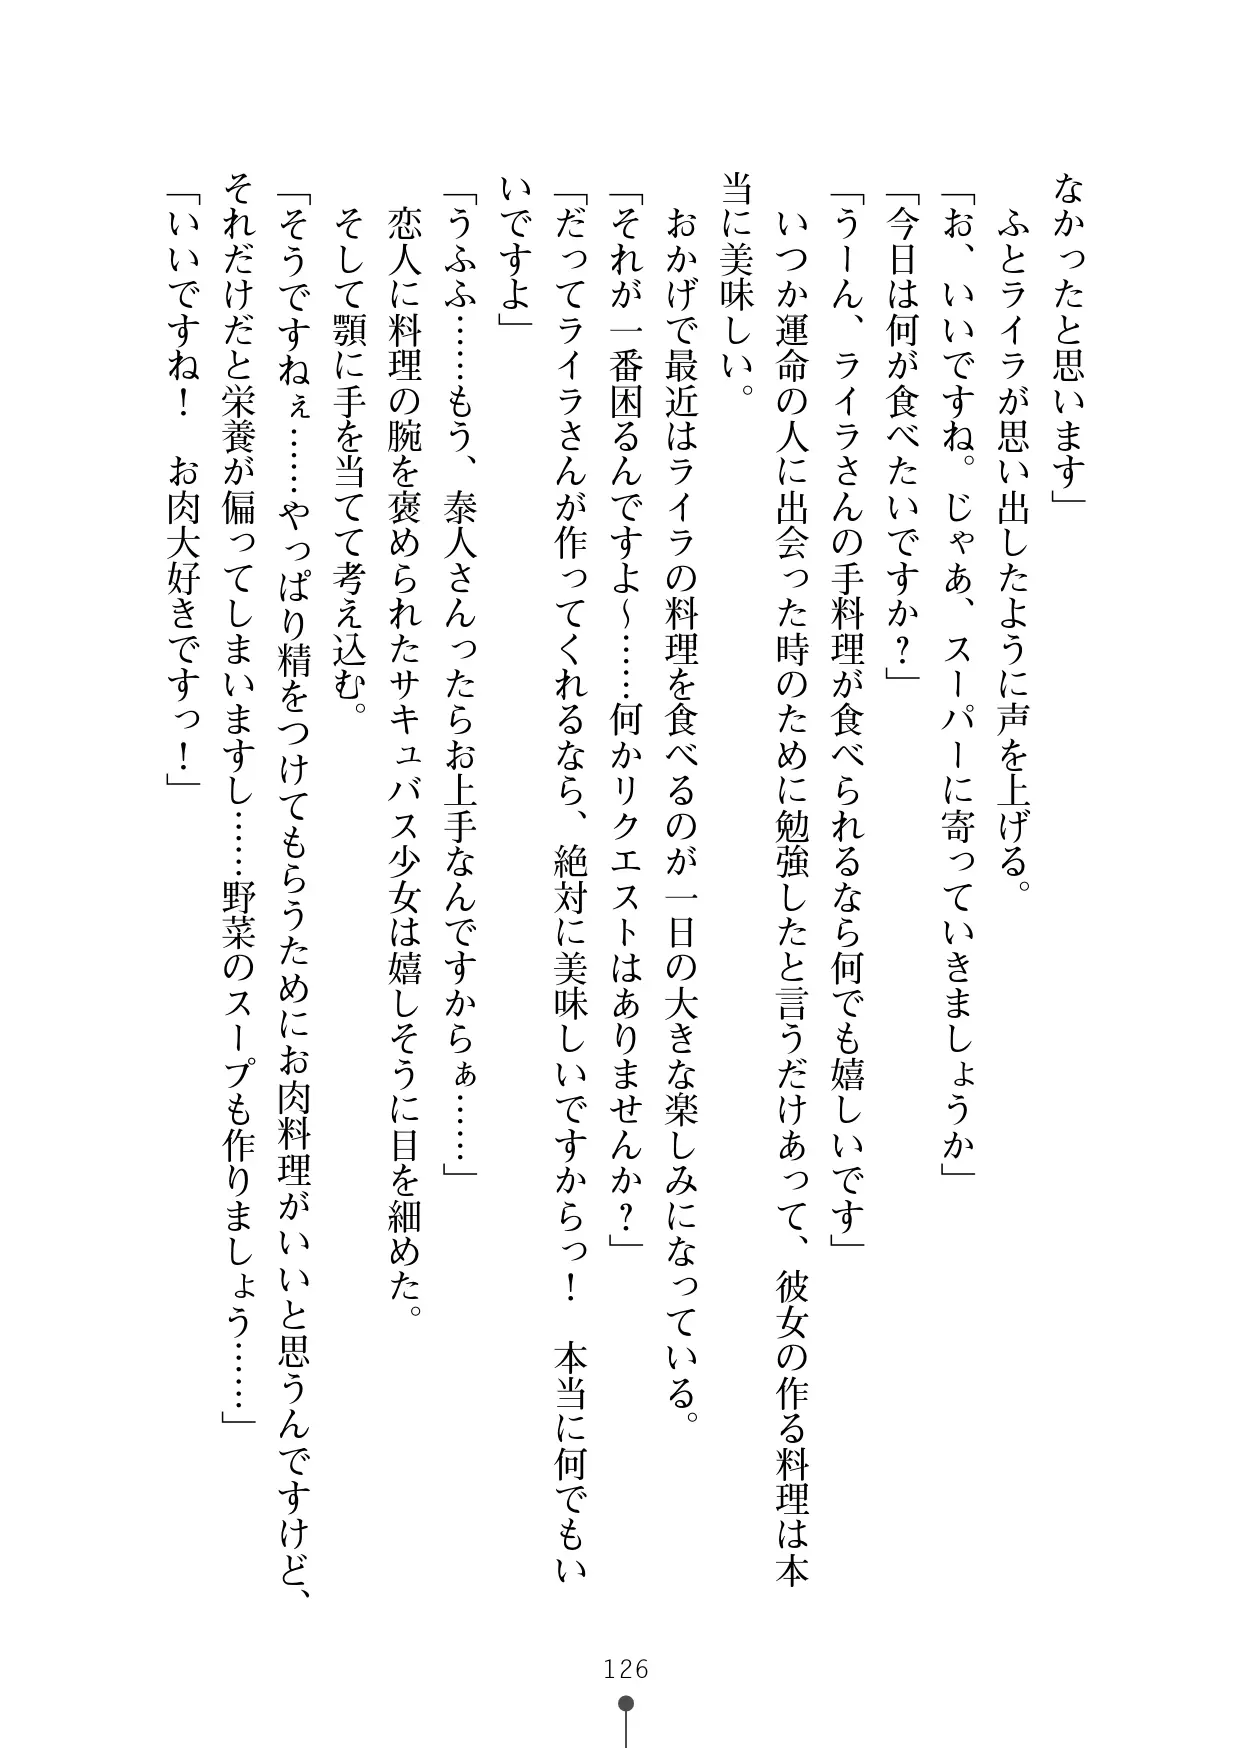 なかったと思います」
　ふとライラが思い出したように声を上げる。
「お、いいですね。じゃあ、スーパーに寄っていきましょうか」
「今日は何が食べたいですか？」
「うーん、ライラさんの手料理が食べられるなら何でも嬉しいです」
　いつか運命の人に出会った時のために勉強したと言うだけあって、彼女の作る料理は本
当に美味しい。
　おかげで最近はライラの料理を食べるのが一日の大きな楽しみになっている。
「それが一番困るんですよ～……何かリクエストはありませんか？」
「だってライラさんが作ってくれるなら、絶対に美味しいですからっ！　本当に何でもい
いですよ」
「うふふ……もう、泰人さんったらお上手なんですからぁ……」
　恋人に料理の腕を褒められたサキュバス少女は嬉しそうに目を細めた。
　そして顎に手を当てて考え込む。
「そうですねぇ……やっぱり精をつけてもらうためにお肉料理がいいと思うんですけど、
それだけだと栄養が偏ってしまいますし……野菜のスープも作りましょう……」
「いいですね！　お肉大好きですっ！」
126